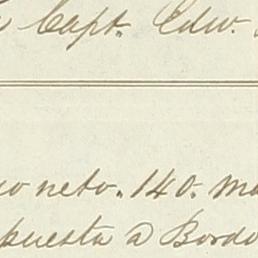 Capt. Edw.
neto. 140.
puesta a Bordo